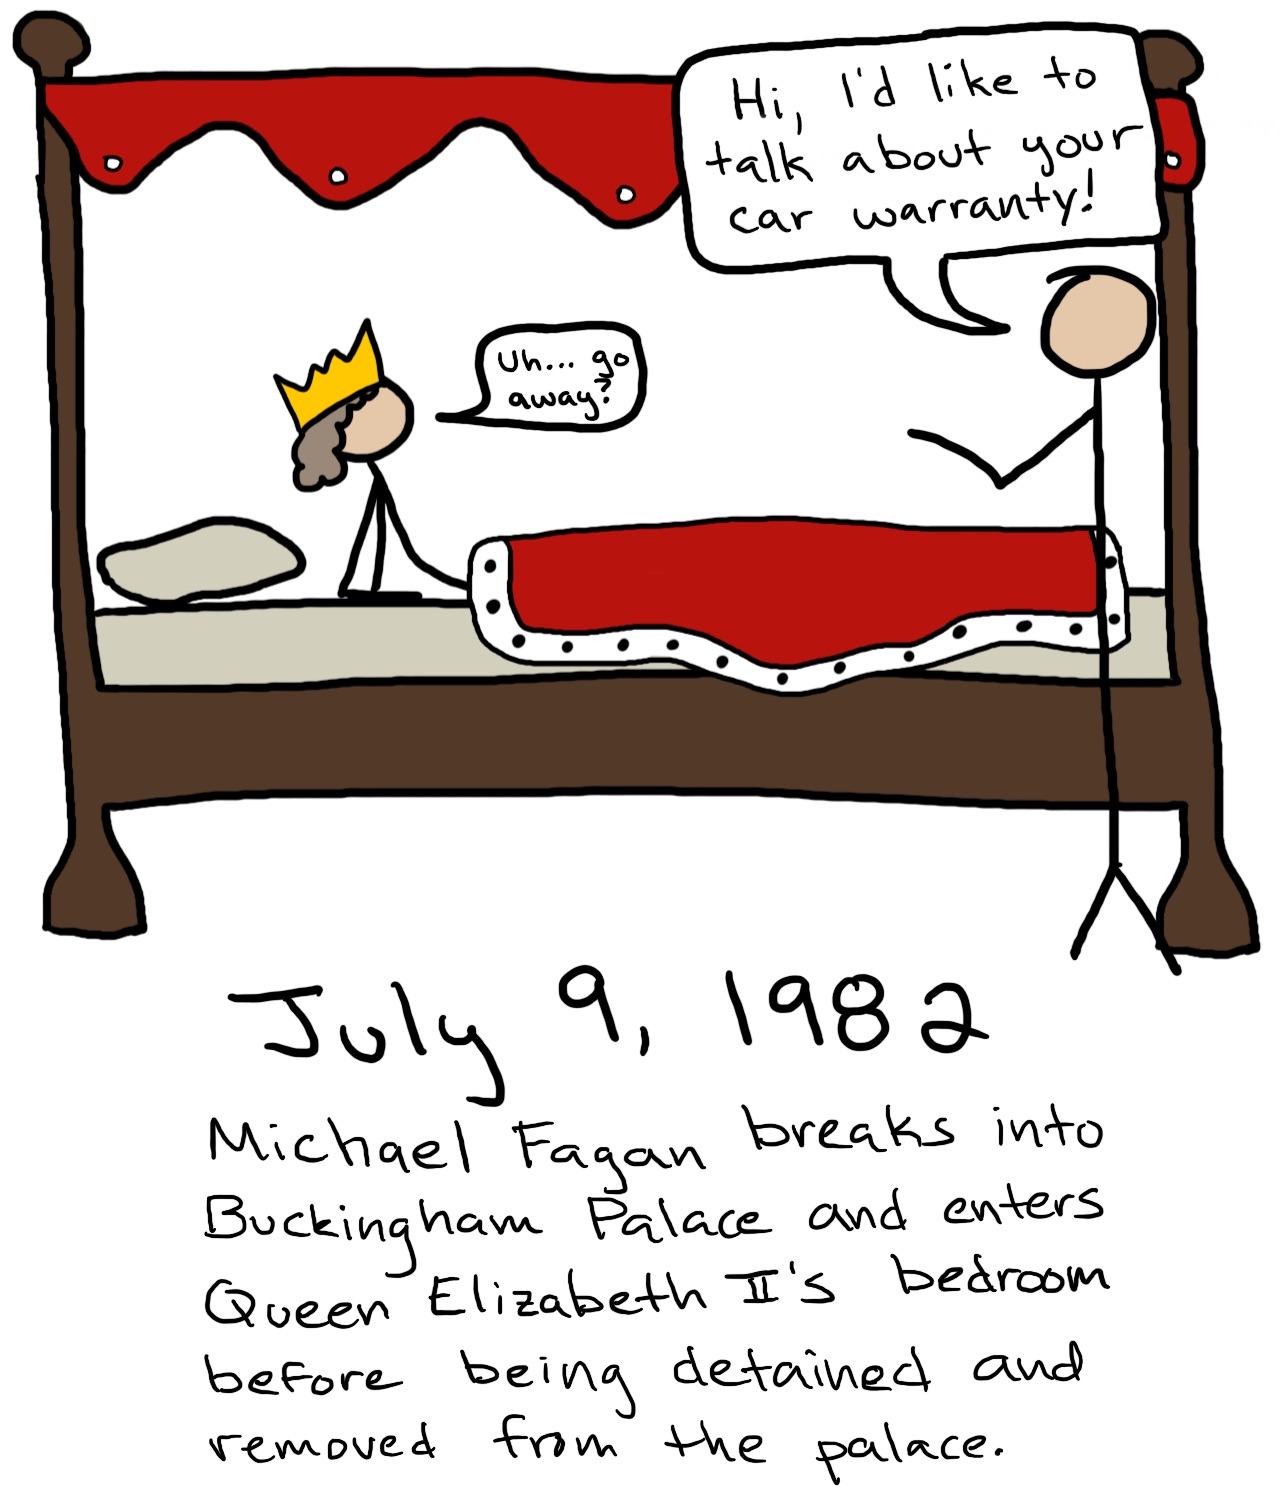 Hi, I'd like to
talk about your
car warranty!
Uh... go
away?
July 9, 1982
Michael Fagan breaks into
Buckingham Palace and enters
Queen Elizabeth II's bedroom
before being detained and
removed from the palace.